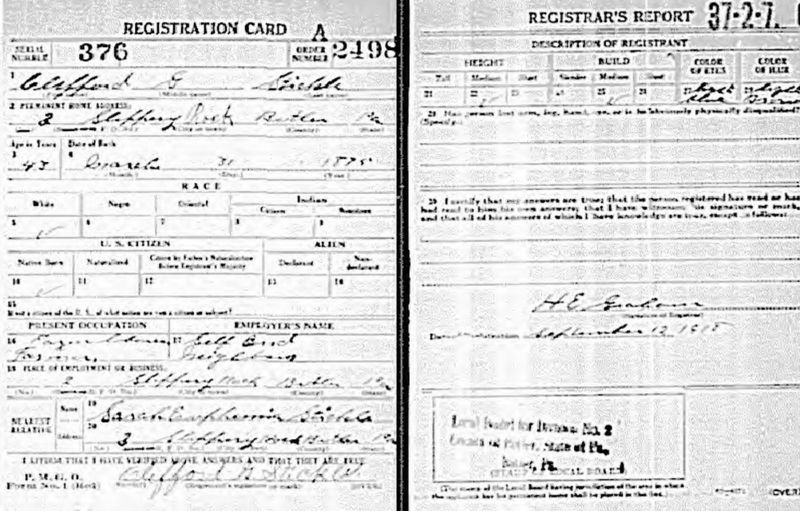 REGISTRATION CARD A
SERIAL NUMBER 376 ORDER NUMBER 2498
1 Clifford G Stickle
2 PERMANENT HOME ADDRESS:
3 Slippery Rock Butler Pa
Age in Years Date of Birth
3 43 4 March 31 1875
RACE
White Negro Oriental Indian
Citizen Noncitizen
5 6 7 8 9
U. S. CITIZEN ALIEN
Native Born Naturalized Citizen by Father's Naturalization Before Registrant's Majority Declarant Non-declarant
10 11 12 13 14
15
If not a citizen of the U. S., of what nation are you a citizen or subject?
PRESENT OCCUPATION EMPLOYER'S NAME
16 Farmer 17 Self and
18 PLACE OF EMPLOYMENT OR BUSINESS:
Slippery Rock Butler Pa
NEAREST RELATIVE Name 19 Sarah Euphemia Stickle
Address 20 3 Slippery Rock Butler Pa
I AFFIRM THAT I HAVE VERIFIED ABOVE ANSWERS AND THAT THEY ARE TRUE
P. M. G. O.
Form No. 1 (Red) Clifford G Stickle (OVER)
REGISTRAR'S REPORT 37-2-7.
DESCRIPTION OF REGISTRANT
HEIGHT BUILD COLOR OF EYES COLOR OF HAIR
Tall Medium Short Slender Medium Stout
21 22 23 24 25 26 27 Blue 28
29 Has person lost arm, leg, hand, eye, or is he obviously physically disqualified?
(Specify.)
30 I certify that my answers are true; that the person registered has read or has
had read to him his own answers; that I have witnessed his signature or mark,
and that all of his answers of which I have knowledge are true, except as follows:
H E Graham
(Signature of Registrar)
Date of Registration September 12, 1918
Local Board for Division No. 2
County of Butler, State of Pa.
Butler, Pa.
(STAMP OF LOCAL BOARD)
(The stamp of the Local Board having jurisdiction of the area in which
the registrant has his permanent home shall be placed in this box.)
(OVER)